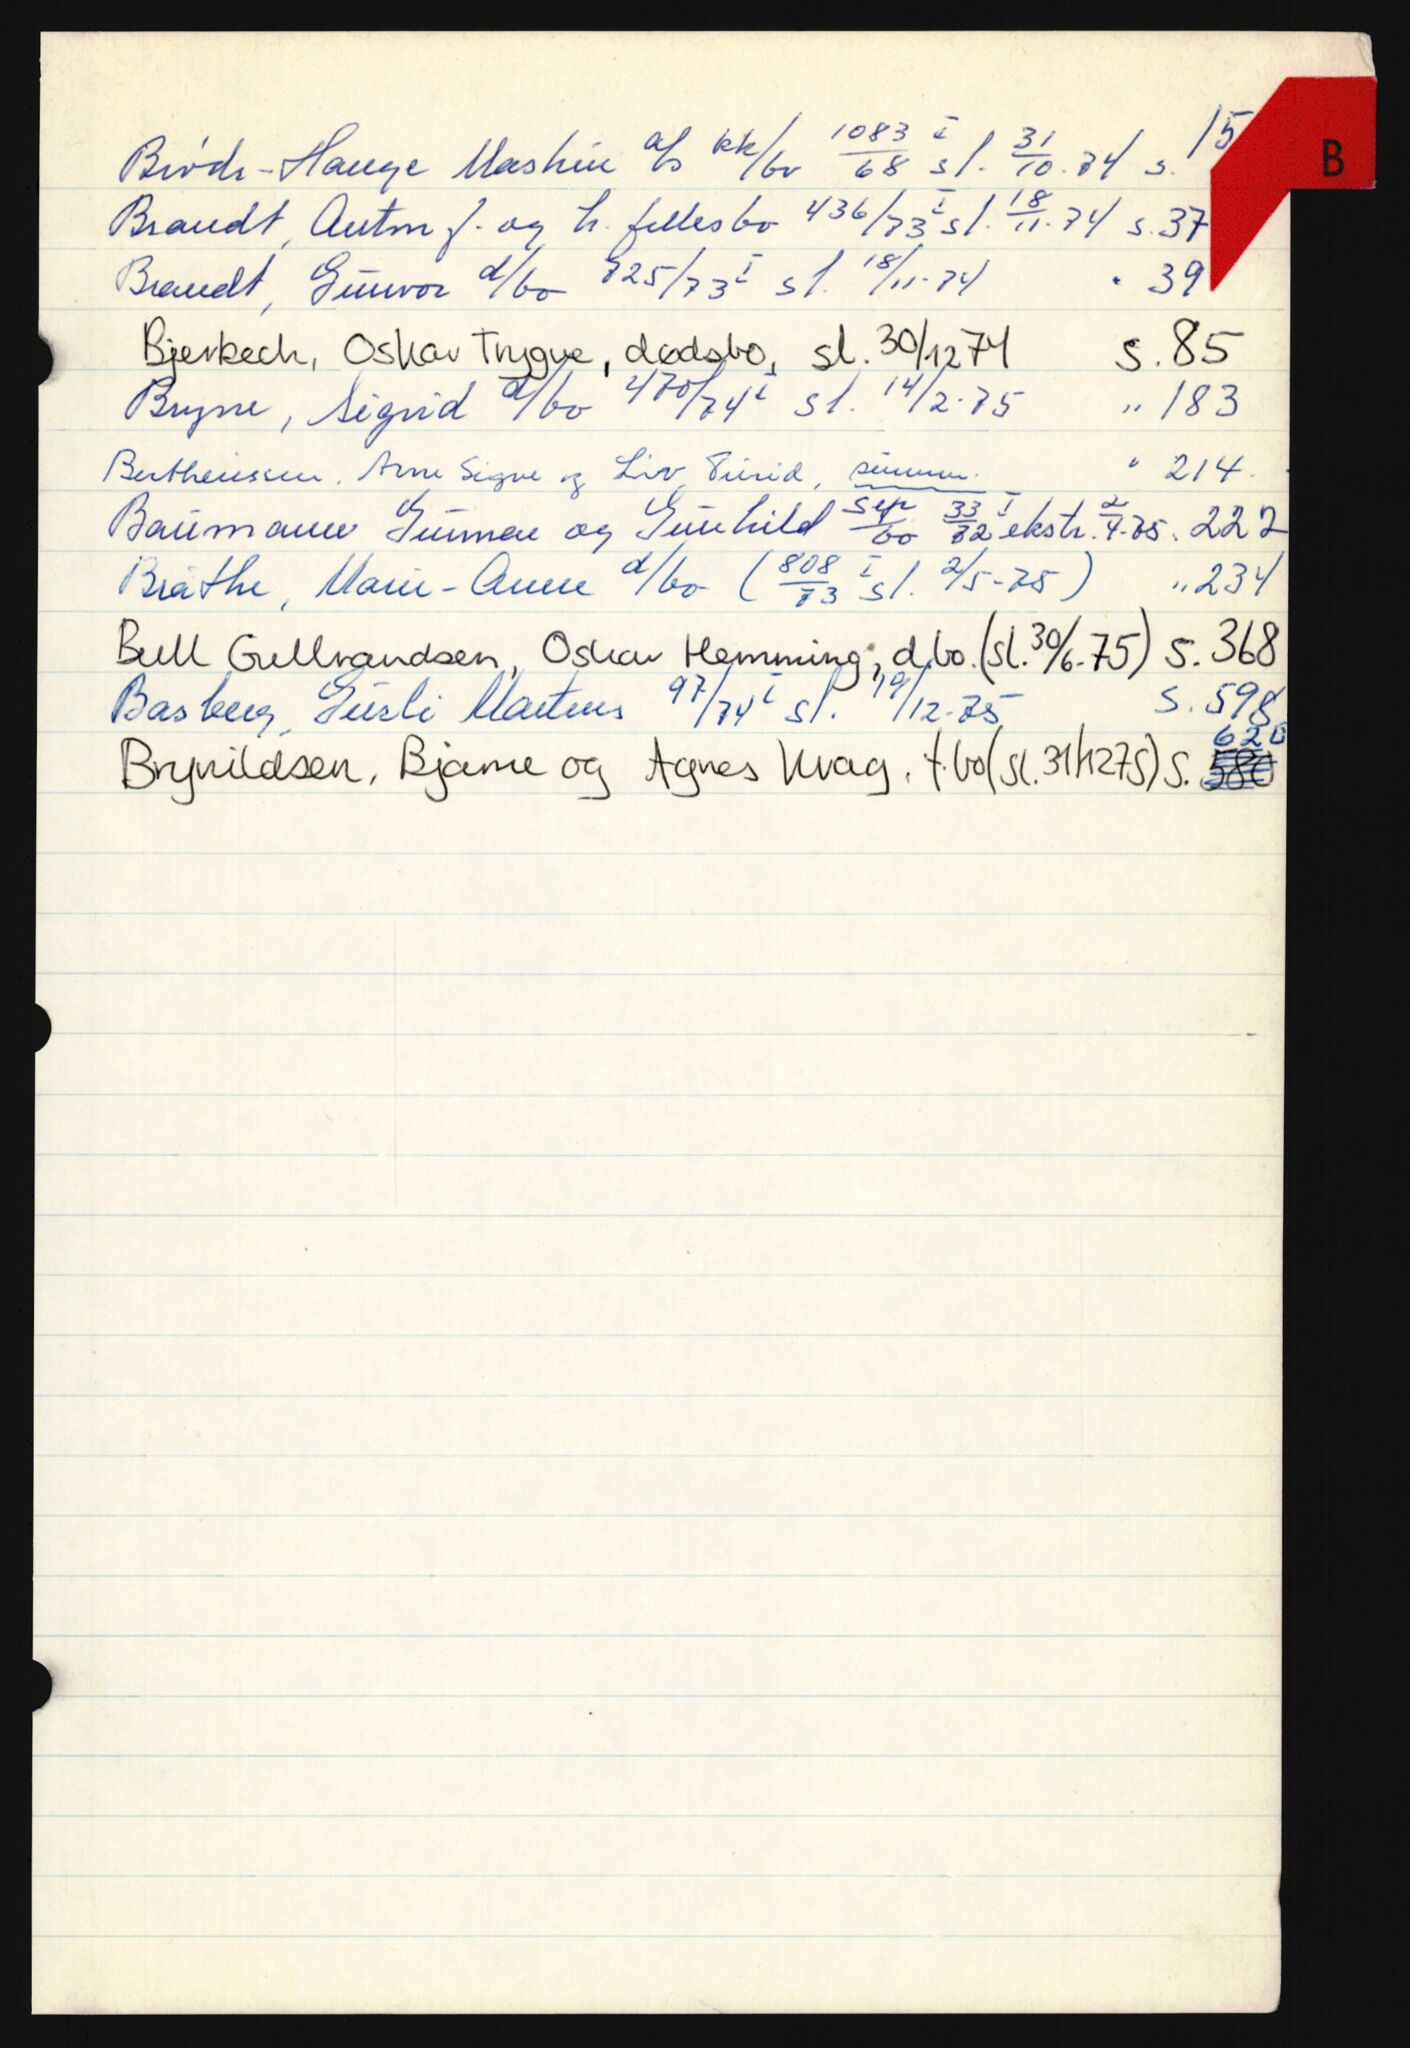 B
Brødr-Hauge Maskin a/s kk/bo 1083/68 I sl. 31/10.74 s. 15
Brandt, Anton f. og h. fellesbo 436/73 I sl. 18/11.74 s. 37
Brandt, Gunvor d/bo 725/73 I sl. 18/11-74 " 39
Bjerkech, Oskar Trygve, dødsbo, sl. 30/12 74 s. 85
Bryne, Sigrid d/bo 470/74 I sl. 14/2-75 " 183
Bertheussen. Arne Sigve og Liv Turid, " 214.
Baumann Gunnar og Gunhild sep/bo 33/72 I ekstr. 2/4-75. 222
Bråthe, Marie-Anne d/bo (808/73 I sl. 2/5-75) " 234
Bull Gullrandsen, Oskar Hemming, d.bo. (sl. 30/6-75) s. 368
Basberg, Gusli Martens 97/74 I sl. 19/12-75 s. 598
620
Brynildsen, Bjarne og Agnes Kvag. f.bo (sl. 31/12 75) s. 580